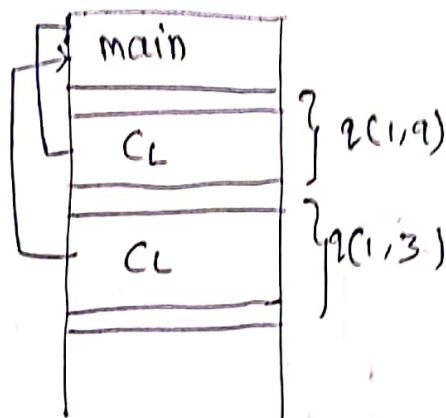 main
CL
q(1,9)
CL
q(1,3)